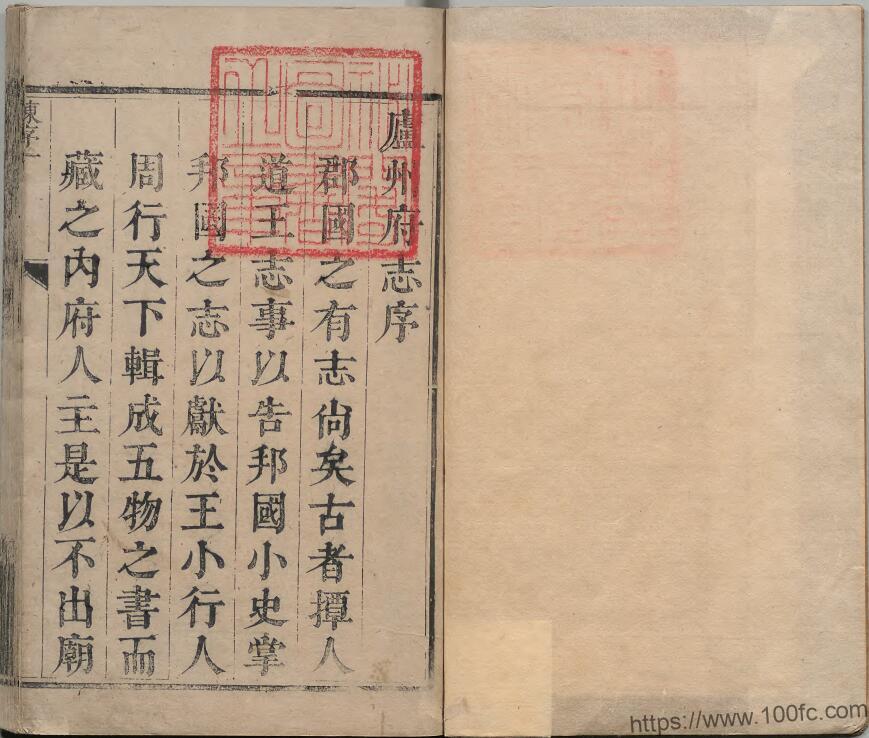 廬州府志序
郡國之有志尚矣古者撢人
道王志事以告邦國小史掌
邦國之志以獻於王小行人
周行天下輯成五物之書而
藏之內府人主是以不出廟
陳序一
https://www.100fc.com